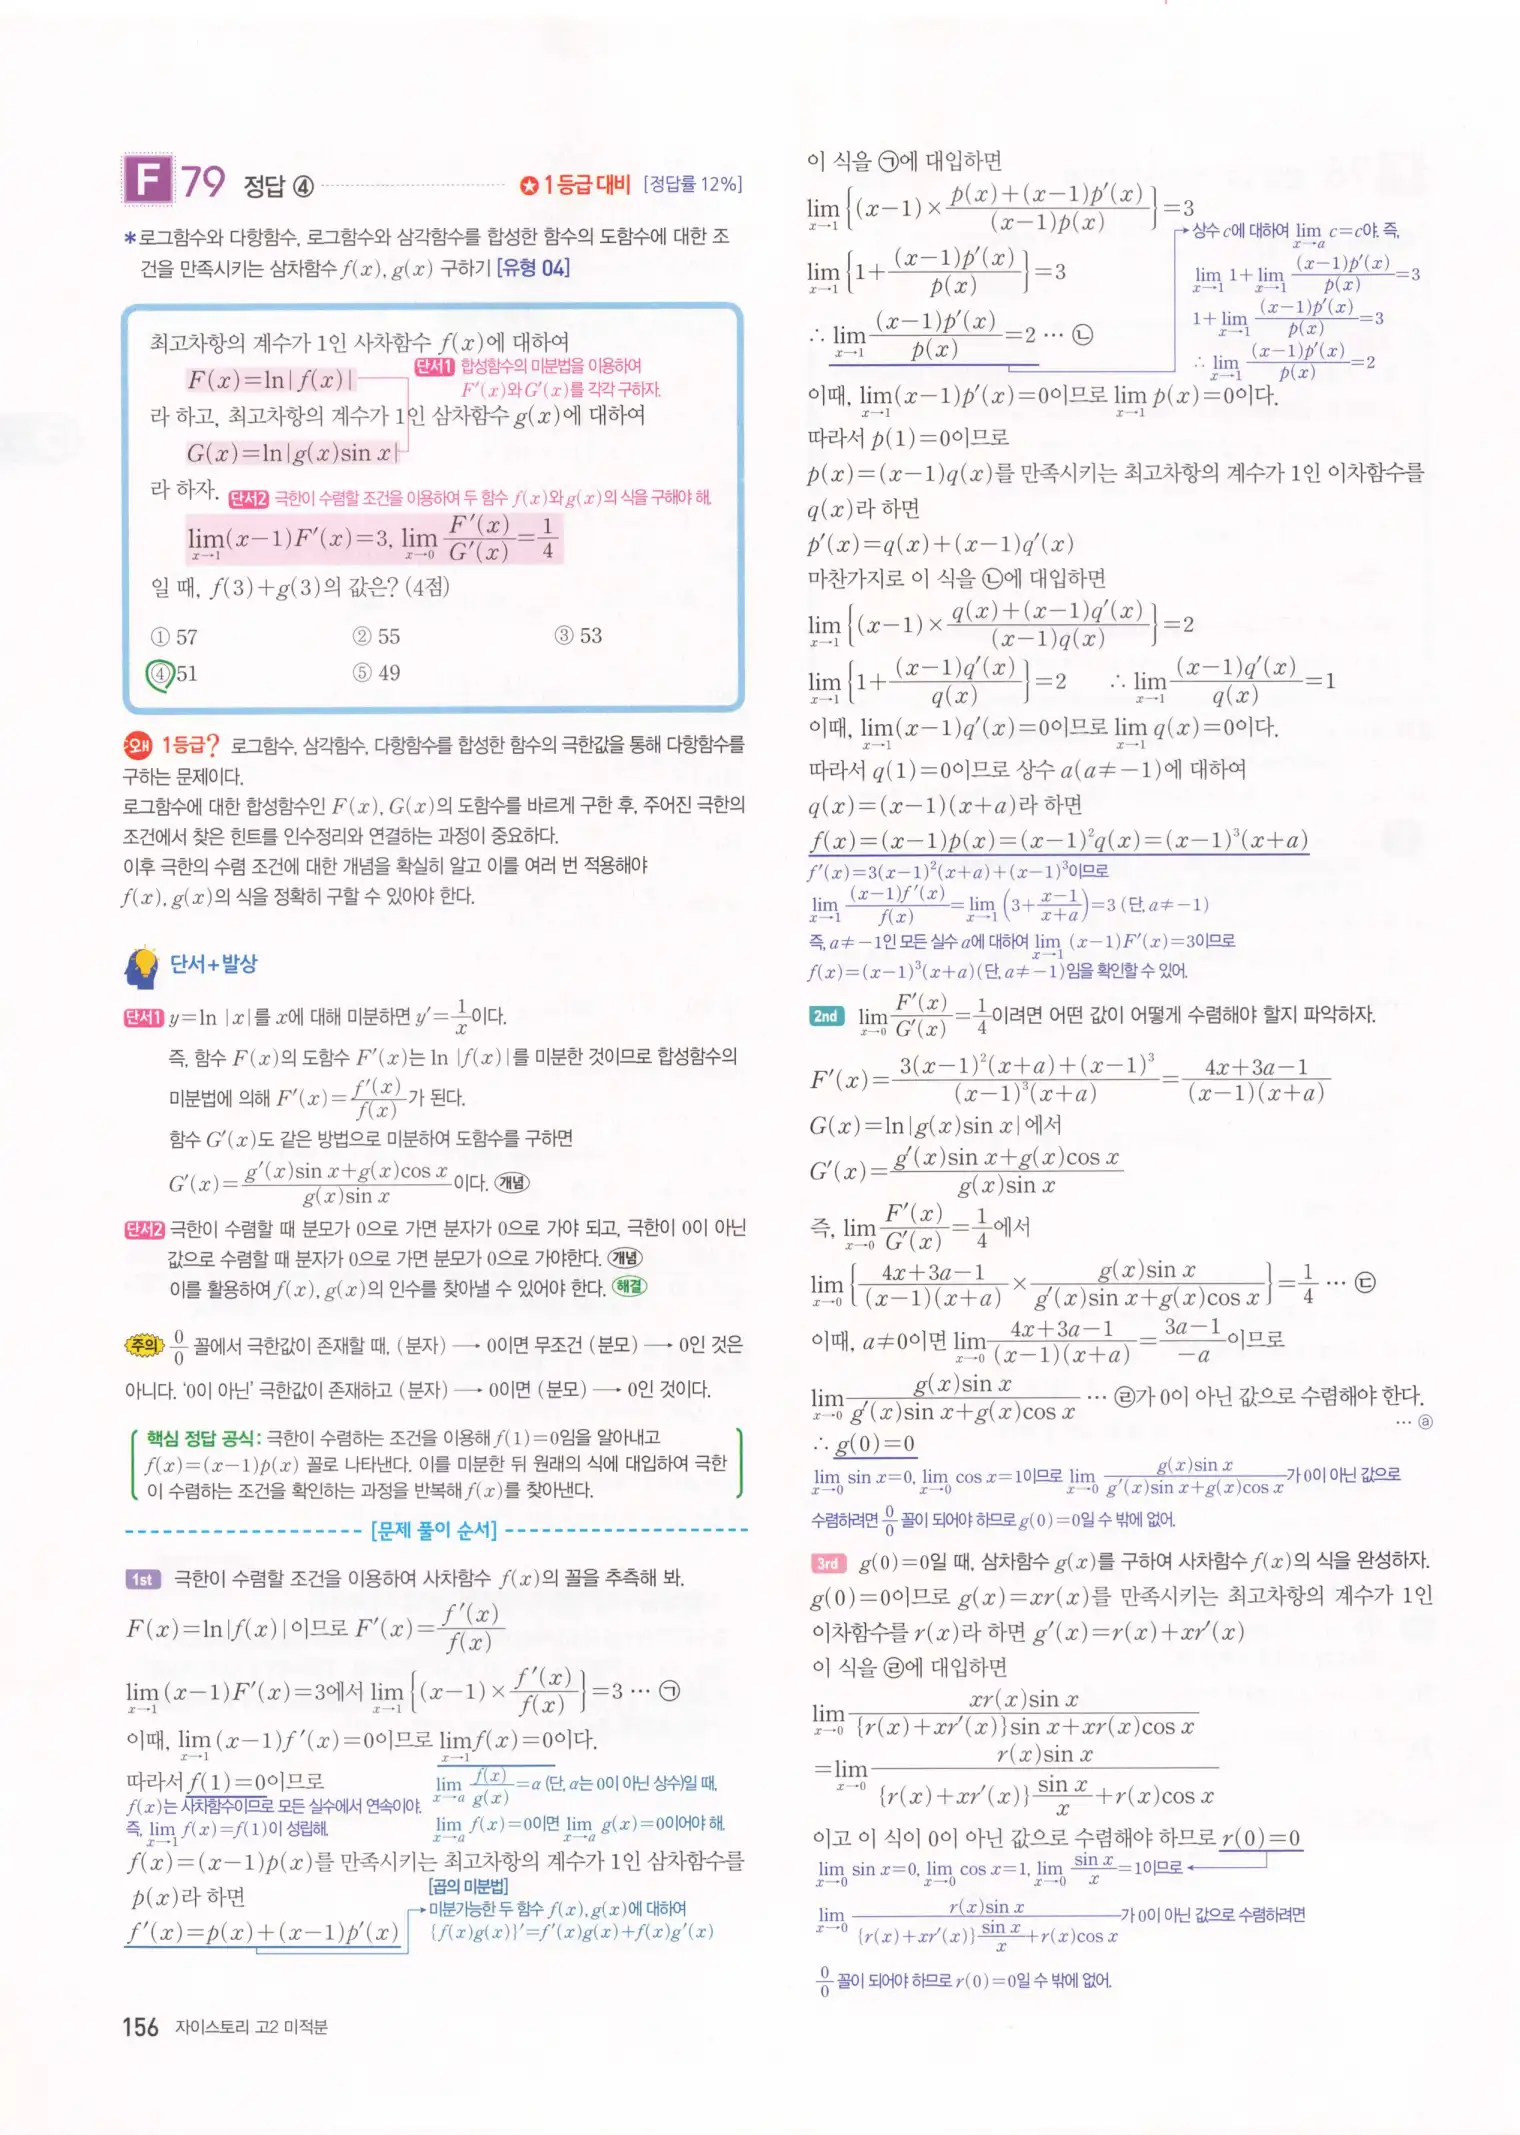 F 79 정답 ④ ✪ 1등급 대비 [정답률 12%]
*로그함수와 다항함수, 로그함수와 삼각함수를 합성한 함수의 도함수에 대한 조
건을 만족시키는 삼차함수 f(x), g(x) 구하기 [유형 04]
최고차항의 계수가 1인 사차함수 f(x)에 대하여
단서1 합성함수의 미분법을 이용하여
F(x)=ln|f(x)|
F′(x)와 G′(x)를 각각 구하자.
라 하고, 최고차항의 계수가 1인 삼차함수 g(x)에 대하여
G(x)=ln|g(x)sin x|
라 하자. 단서2 극한이 수렴할 조건을 이용하여 두 함수 f(x)와 g(x)의 식을 구해야 해.
lim_{x→1}(x−1)F′(x)=3, lim_{x→0} F′(x)/G′(x)=1/4
일 때, f(3)+g(3)의 값은? (4점)
① 57 ② 55 ③ 53
④ 51 ⑤ 49
왜 1등급? 로그함수, 삼각함수, 다항함수를 합성한 함수의 극한값을 통해 다항함수를
구하는 문제이다.
로그함수에 대한 합성함수인 F(x), G(x)의 도함수를 바르게 구한 후, 주어진 극한의
조건에서 찾은 힌트를 인수정리와 연결하는 과정이 중요하다.
이후 극한의 수렴 조건에 대한 개념을 확실히 알고 이를 여러 번 적용해야
f(x), g(x)의 식을 정확히 구할 수 있어야 한다.
단서+발상
단서1 y=ln |x|를 x에 대해 미분하면 y′=1/x이다.
즉, 함수 F(x)의 도함수 F′(x)는 ln |f(x)|를 미분한 것이므로 합성함수의
미분법에 의해 F′(x)=f′(x)/f(x)가 된다.
함수 G′(x)도 같은 방법으로 미분하여 도함수를 구하면
G′(x)={g′(x)sin x+g(x)cos x}/{g(x)sin x}이다. 개념
단서2 극한이 수렴할 때 분모가 0으로 가면 분자가 0으로 가야 되고, 극한이 0이 아닌
값으로 수렴할 때 분자가 0으로 가면 분모가 0으로 가야한다. 개념
이를 활용하여 f(x), g(x)의 인수를 찾아낼 수 있어야 한다. 해결
주의 0/0 꼴에서 극한값이 존재할 때, (분자) → 0이면 무조건 (분모) → 0인 것은
아니다. '0이 아닌' 극한값이 존재하고 (분자) → 0이면 (분모) → 0인 것이다.
핵심 정답 공식: 극한이 수렴하는 조건을 이용해 f(1)=0임을 알아내고
f(x)=(x−1)p(x) 꼴로 나타낸다. 이를 미분한 뒤 원래의 식에 대입하여 극한
이 수렴하는 조건을 확인하는 과정을 반복해 f(x)를 찾아낸다.
[문제 풀이 순서]
1st 극한이 수렴할 조건을 이용하여 사차함수 f(x)의 꼴을 추측해 봐.
F(x)=ln|f(x)|이므로 F′(x)=f′(x)/f(x)
lim_{x→1}(x−1)F′(x)=3에서 lim_{x→1}{(x−1)×f′(x)/f(x)}=3 … ㉠
이때, lim_{x→1}(x−1)f′(x)=0이므로 lim_{x→1}f(x)=0이다.
따라서 f(1)=0이므로
f(x)는 사차함수이므로 모든 실수에서 연속이야.
즉, lim_{x→1} f(x)=f(1)이 성립해.
lim_{x→a} f(x)/g(x)=α (단, α는 0이 아닌 상수)일 때,
lim_{x→a} f(x)=0이면 lim_{x→a} g(x)=0이어야 해.
f(x)=(x−1)p(x)를 만족시키는 최고차항의 계수가 1인 삼차함수를
p(x)라 하면
f′(x)=p(x)+(x−1)p′(x)
[곱의 미분법]
미분가능한 두 함수 f(x), g(x)에 대하여
{f(x)g(x)}′=f′(x)g(x)+f(x)g′(x)
156 자이스토리 고2 미적분
이 식을 ㉠에 대입하면
lim_{x→1}{(x−1)×{p(x)+(x−1)p′(x)}/{(x−1)p(x)}}=3
lim_{x→1}{1+(x−1)p′(x)/p(x)}=3
∴ lim_{x→1} (x−1)p′(x)/p(x)=2 … ㉡
상수 c에 대하여 lim_{x→a} c=c야. 즉,
lim_{x→1} 1+lim_{x→1} (x−1)p′(x)/p(x)=3
1+lim_{x→1} (x−1)p′(x)/p(x)=3
∴ lim_{x→1} (x−1)p′(x)/p(x)=2
이때, lim_{x→1}(x−1)p′(x)=0이므로 lim_{x→1} p(x)=0이다.
따라서 p(1)=0이므로
p(x)=(x−1)q(x)를 만족시키는 최고차항의 계수가 1인 이차함수를
q(x)라 하면
p′(x)=q(x)+(x−1)q′(x)
마찬가지로 이 식을 ㉡에 대입하면
lim_{x→1}{(x−1)×{q(x)+(x−1)q′(x)}/{(x−1)q(x)}}=2
lim_{x→1}{1+(x−1)q′(x)/q(x)}=2 ∴ lim_{x→1} (x−1)q′(x)/q(x)=1
이때, lim_{x→1}(x−1)q′(x)=0이므로 lim_{x→1} q(x)=0이다.
따라서 q(1)=0이므로 상수 a(a≠−1)에 대하여
q(x)=(x−1)(x+a)라 하면
f(x)=(x−1)p(x)=(x−1)²q(x)=(x−1)³(x+a)
f′(x)=3(x−1)²(x+a)+(x−1)³이므로
lim_{x→1} (x−1)f′(x)/f(x)=lim_{x→1}(3+(x−1)/(x+a))=3 (단, a≠−1)
즉, a≠−1인 모든 실수 a에 대하여 lim_{x→1} (x−1)F′(x)=3이므로
f(x)=(x−1)³(x+a)(단, a≠−1)임을 확인할 수 있어.
2nd lim_{x→0} F′(x)/G′(x)=1/4이려면 어떤 값이 어떻게 수렴해야 할지 파악하자.
F′(x)={3(x−1)²(x+a)+(x−1)³}/{(x−1)³(x+a)}=(4x+3a−1)/{(x−1)(x+a)}
G(x)=ln|g(x)sin x|에서
G′(x)={g′(x)sin x+g(x)cos x}/{g(x)sin x}
즉, lim_{x→0} F′(x)/G′(x)=1/4에서
lim_{x→0}{(4x+3a−1)/{(x−1)(x+a)}×g(x)sin x/{g′(x)sin x+g(x)cos x}}=1/4 … ㉢
이때, a≠0이면 lim_{x→0} (4x+3a−1)/{(x−1)(x+a)}=(3a−1)/(−a)이므로
lim_{x→0} g(x)sin x/{g′(x)sin x+g(x)cos x} … ㉣가 0이 아닌 값으로 수렴해야 한다.
… ⓐ
∴ g(0)=0
lim_{x→0} sin x=0, lim_{x→0} cos x=1이므로 lim_{x→0} g(x)sin x/{g′(x)sin x+g(x)cos x}가 0이 아닌 값으로
수렴하려면 0/0 꼴이 되어야 하므로 g(0)=0일 수 밖에 없어.
3rd g(0)=0일 때, 삼차함수 g(x)를 구하여 사차함수 f(x)의 식을 완성하자.
g(0)=0이므로 g(x)=xr(x)를 만족시키는 최고차항의 계수가 1인
이차함수를 r(x)라 하면 g′(x)=r(x)+xr′(x)
이 식을 ㉣에 대입하면
lim_{x→0} xr(x)sin x/[{r(x)+xr′(x)}sin x+xr(x)cos x]
=lim_{x→0} r(x)sin x/[{r(x)+xr′(x)}(sin x/x)+r(x)cos x]
이고 이 식이 0이 아닌 값으로 수렴해야 하므로 r(0)=0
lim_{x→0} sin x=0, lim_{x→0} cos x=1, lim_{x→0} sin x/x=1이므로
lim_{x→0} r(x)sin x/[{r(x)+xr′(x)}(sin x/x)+r(x)cos x]가 0이 아닌 값으로 수렴하려면
0/0 꼴이 되어야 하므로 r(0)=0일 수 밖에 없어.